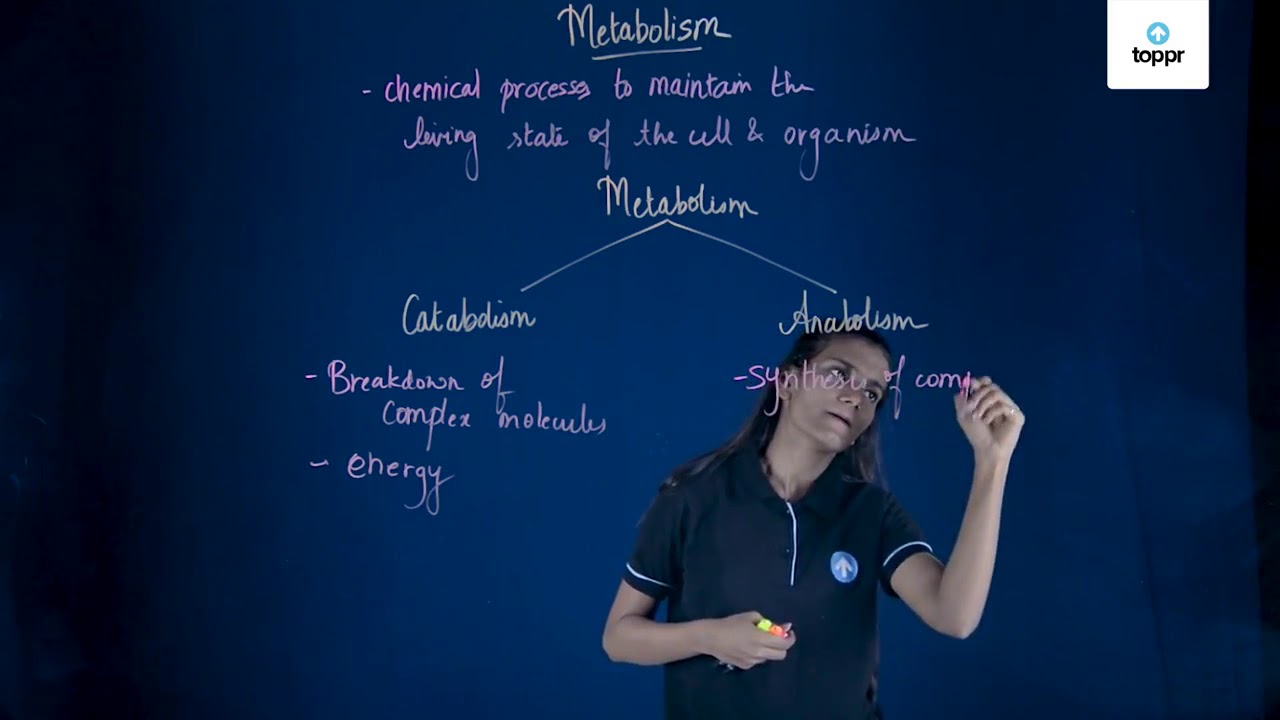 Metabolism
toppr
- chemical processes to maintain the
living state of the cell & organism
Metabolism
Catabolism
Anabolism
- Breakdown of
complex molecules
- energy
- Synthesis of comp